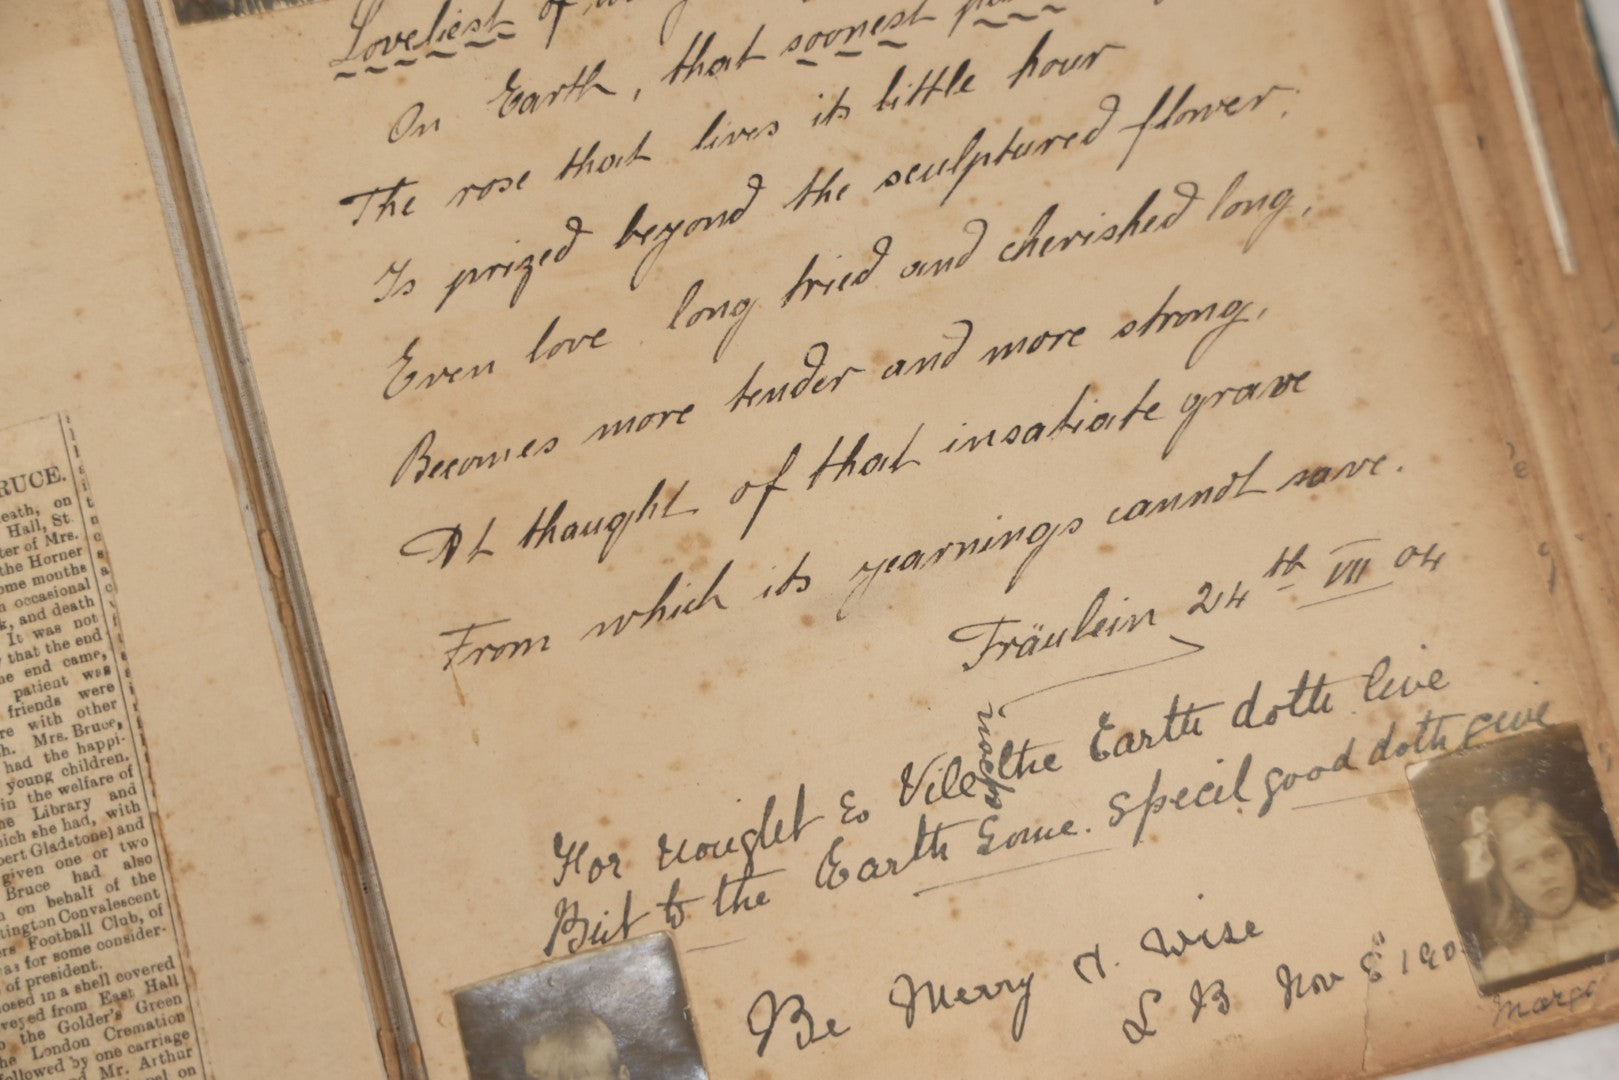 RUCE.
eath, on
Hall, St.
ter of Mrs.
the Horner
ome months
n occasional
k, and death
It was not
that the end
he end came,
patient was
friends were
re with other
h. Mrs. Bruce,
had the happi-
young children.
in the welfare of
he Library and
hich she had, with
bert Gladstone) and
given one or two
Bruce had also
n on behalf of the
tington Convalescent
ers Football Club, of
as for some consider-
of president.
osed in a shell covered
veyed from East Hall
o the Golder's Green
he London Cremation
ollowed by one carriage
d Mr. Arthur
pel on
Loveliest of
On Earth, that soonest
The rose that lives its little hour
Is prized beyond the sculptured flower.
Even love long tried and cherished long,
Becomes more tender and more strong,
At thought of that insatiate grave
From which its yearnings cannot save.
Fräulein 24th VII 04
For nought so Vile upon the Earth doth live
But to the Earth Some special good doth give
Be Merry & Wise
L B Nov 8" 190